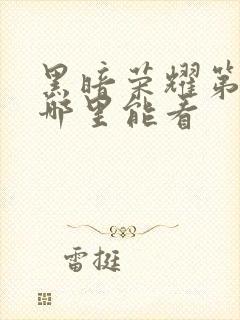 黑暗荣耀第
哪里能看
雷挺